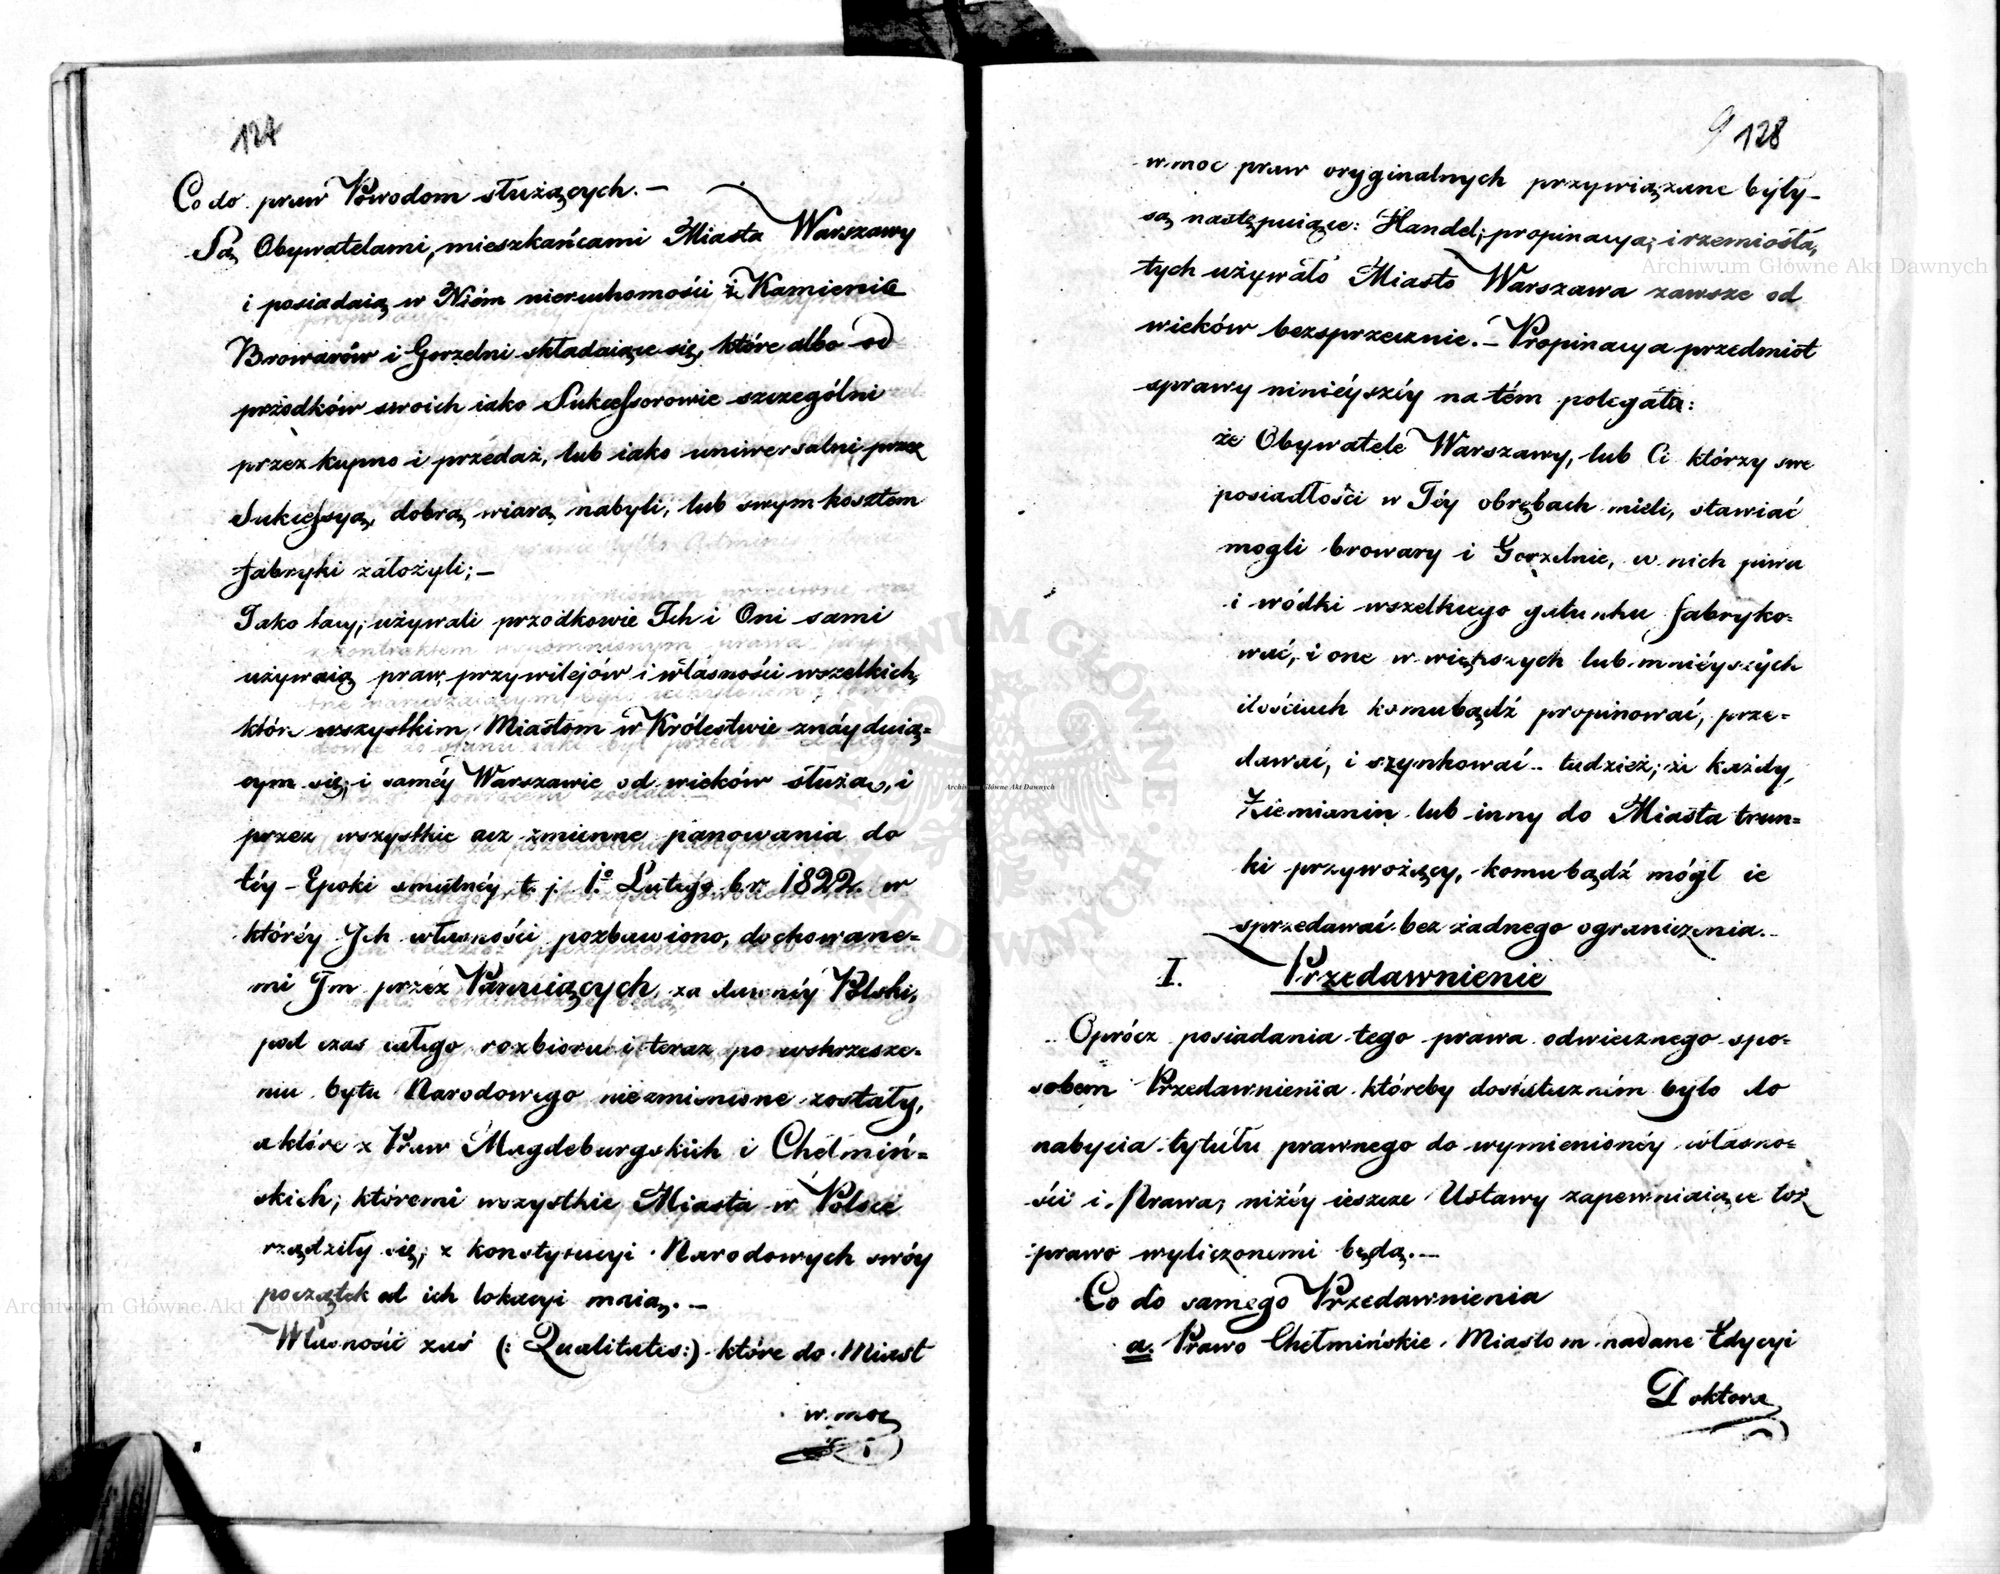 127
Co do praw Powodom służących. —
Są Obywatelami, mieszkańcami Miasta Warszawy
i posiadaią w Niém nieruchomości z Kamienic
Browarów i Gorzelni składaiące się, które albo od
przodków swoich iako Sukcessorowie szczególni
przez kupno i przedaż, lub iako uniwersalni przez
Sukcessyą, dobrą wiarą nabyli, lub swym kosztem
fabryki założyli; —
Jako tacy, używali przodkowie Ich i Oni sami
używaią praw, przywilejów i własności wszelkich,
które wszystkim Miastom w Królestwie znáyduią=
cym się; i saméy Warszawie od wieków służą, i
przez wszystkie acz zmienne panowania do
téy Epoki smutnéy t. j. 1º Lutego b. r. 1822. w
któréy Ich własności pozbawiono, dochowane=
mi Im przez Panuiących, za dawnéy Polski,
pod czas całego rozbioru i teraz po wskrzesze=
niu bytu Narodowego niezmienione zostały,
a które z Praw Magdeburgskich i Chełmiń=
skich, któremi wszystkie Miasta w Polsce
rządziły się, z konstytucyi Narodowych swóy
początek od ich lokacyi maią. —
Własności zaś (: Qualitates:) które do Miast
w moc
9 128
w moc praw oryginalnych przywiązane były —
są następuiące: Handel; propinacya; i rzemiosła,
tych używało Miasto Warszawa zawsze od
wieków bezsprzecznie. — Propinacya przedmiot
sprawy niniéyszéy na tém polegała:
że Obywatele Warszawy, lub Ci którzy swe
posiadłości w Téy obrębach mieli, stawiać
mogli browary i Gorzelnie, w nich piwa
i wódki wszelkiego gatunku fabryko=
wać, i one w większych lub mniéyszych
ilościach komubądź propinować, prze=
dawać, i szynkować — tudzież; że każdy,
Ziemianin lub inny do Miasta trun=
ki przywożący, komubądź mógł ie
sprzedawać bez żadnego ograniczenia. —
I. Przedawnienie
Oprócz posiadania tego prawa odwiecznego spo=
sobem Przedawnienia któreby dostateczném było do
nabycia tytułu prawnego do wymienionéy własno=
ści i Prawa, niżéy ieszcze Ustawy zapewniaiące toż
prawo wyliczonemi będą. —
Co do samego Przedawnienia
a. Prawo Chełmińskie Miastom nadane Edycyi
Doktora
Archiwum Główne Akt Dawnych
Archiwum Główne Akt Dawnych
Archiwum Główne Akt Dawnych